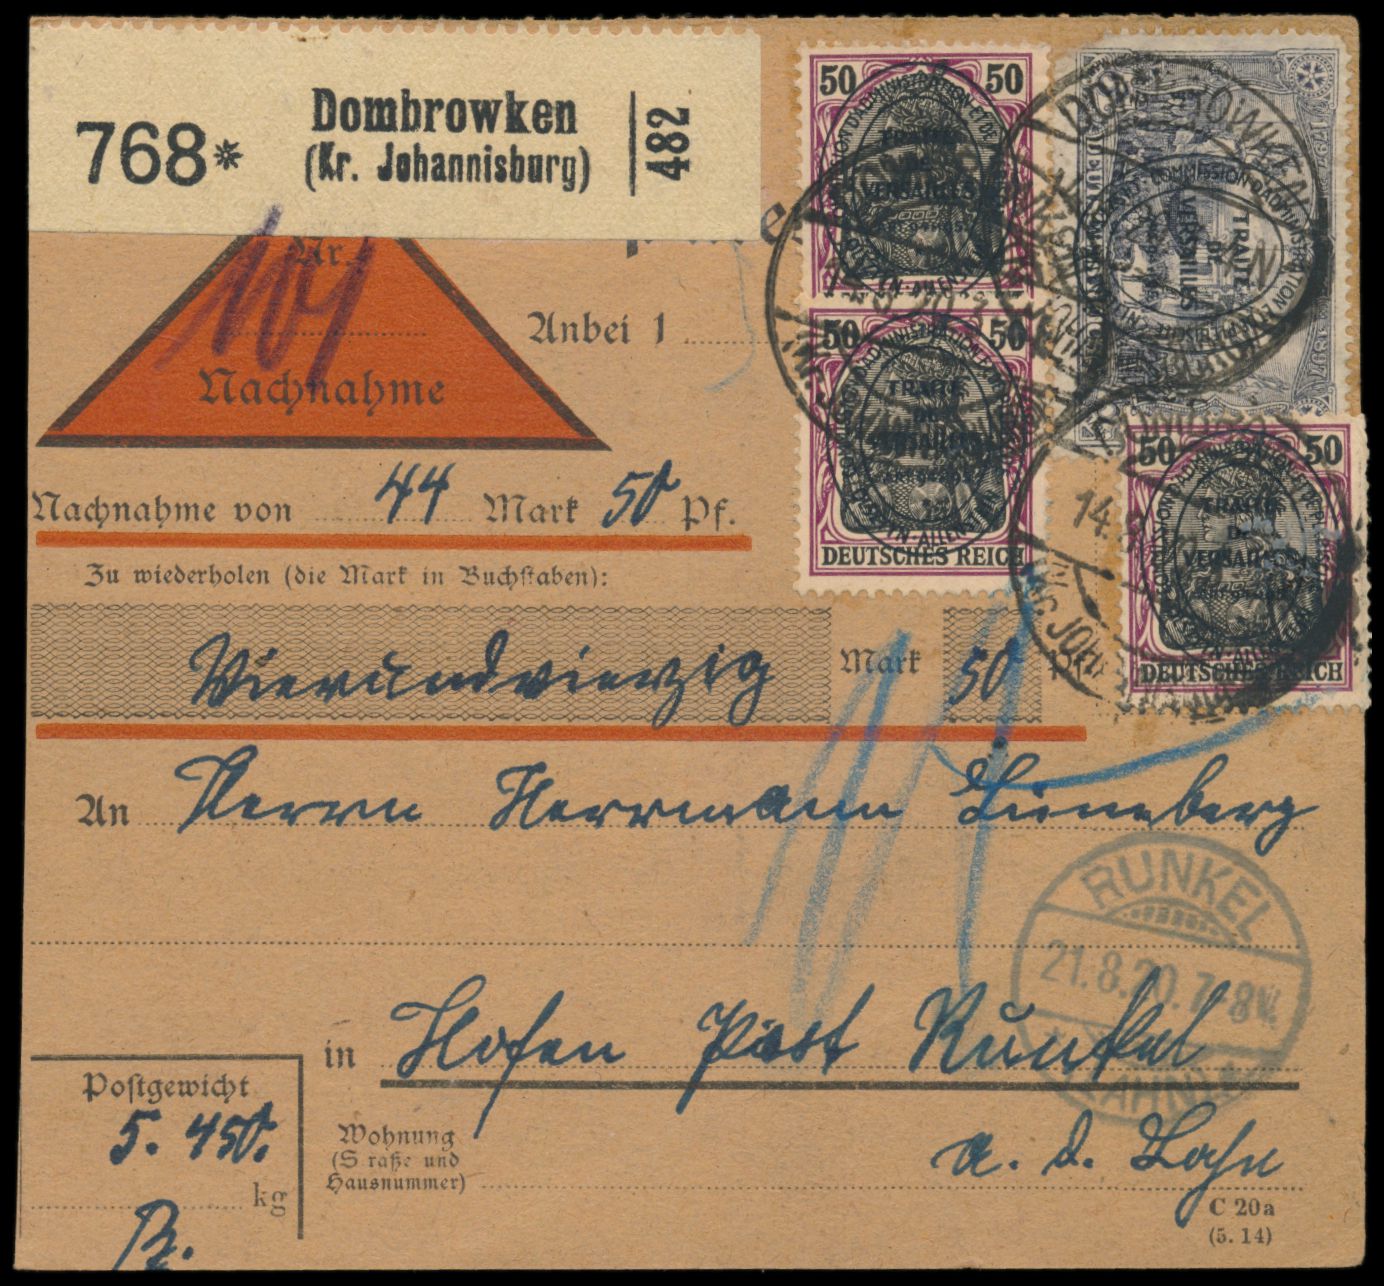 768*
Dombrowken
(Kr. Johannisburg)
482
50 50
Nr.
109
Nachnahme
Anbei 1
50 50
TRAITÉ
DE
VERSAILLES
DEUTSCHES REICH
Nachnahme von 44 Mark 50 Pf.
Zu wiederholen (die Mark in Buchstaben):
50 50
TRAITÉ
DE
VERSAILLES
DEUTSCHES REICH
Vierundvierzig Mark 50
An Herrn Herrmann Lüneberg
RUNKEL
21.8.20.7-8V.
* (LAHN) *
in Hofen Post Runkel
a. d. Lahn
Postgewicht
5. 450.
kg
Wohnung
(S raße und
Hausnummer)
C 20a
(5. 14)